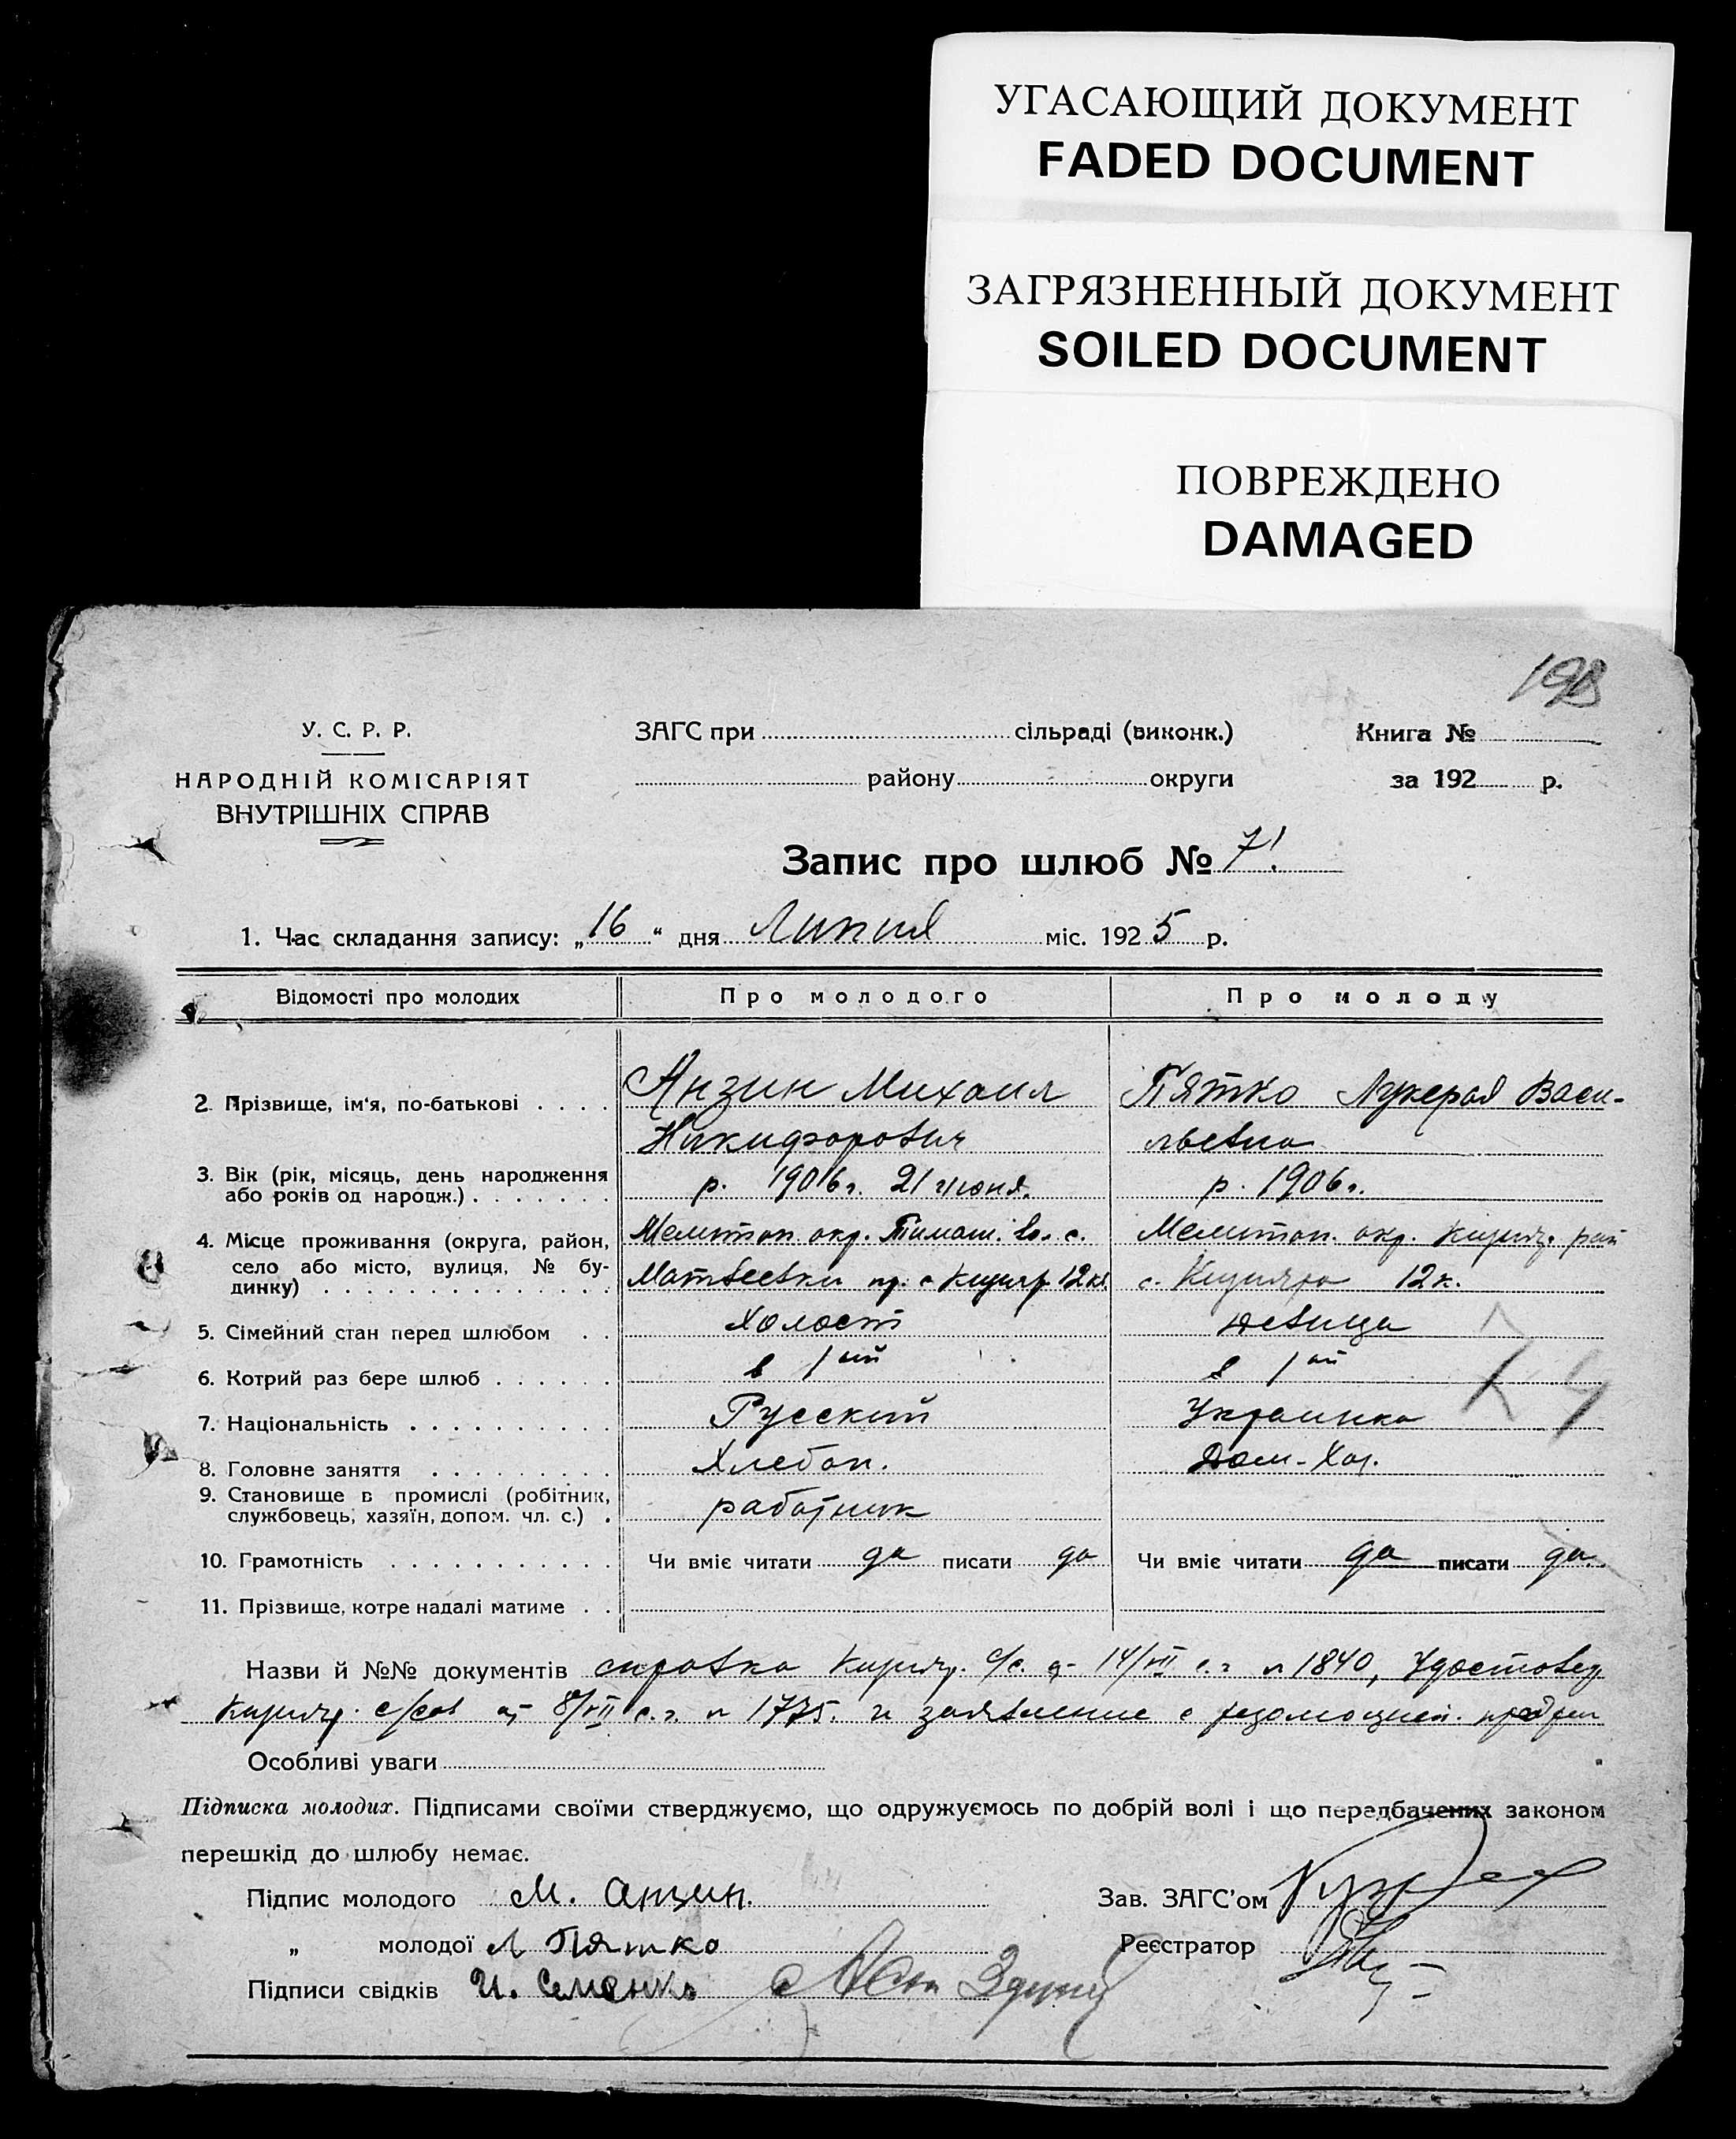 УГАСАЮЩИЙ ДОКУМЕНТ
FADED DOCUMENT
ЗАГРЯЗНЕННЫЙ ДОКУМЕНТ
SOILED DOCUMENT
ПОВРЕЖДЕНО
DAMAGED
У. С. Р. Р. ЗАГС при сільраді (виконк.) Книга №
НАРОДНІЙ КОМІСАРІЯТ району округи за 192 р.
ВНУТРІШНІХ СПРАВ
Запис про шлюб № 71.
1. Час складання запису: „16“ дня Липня міс. 1925 р.
Відомості про молодих Про молодого Про молоду
2. Прізвище, ім'я, по-батькові Анзин Михаил Пятко Лукерья Васи-
Никифорович льевна
3. Вік (рік, місяць, день народження
або років од народж.) р. 1906 г. 21 июня. р. 1906 г.
4. Місце проживання (округа, район, Мелитоп. окр. с. Мелитоп. окр. рай
село або місто, вулиця, № бу-
динку) Матвеевки 12 кв. с. 12 к.
5. Сімейний стан перед шлюбом Холост девица
6. Котрий раз бере шлюб в 1ый в 1ый
7. Національність Русский Украинка
8. Головне заняття Хлебоп. Дом-Хоз.
9. Становище в промислі (робітник,
службовець, хазяїн, допом. чл. с.) работник
10. Грамотність Чи вміє читати да писати да Чи вміє читати да писати да
11. Прізвище, котре надалі матиме
Назви й №№ документів справка с/с. от 14/VII с.г. № 1840, Удостовер.
с/сов от 8/VII с.г. № 1775. и заявление с резолюцией
Особливі уваги
Підписка молодих. Підписами своїми стверджуємо, що одружуємось по добрій волі і що передбачених законом
перешкід до шлюбу немає.
Підпис молодого М. Анзин. Зав. ЗАГС'ом
„ молодої Л Пятко Реєстратор
Підписи свідків И. Семенко